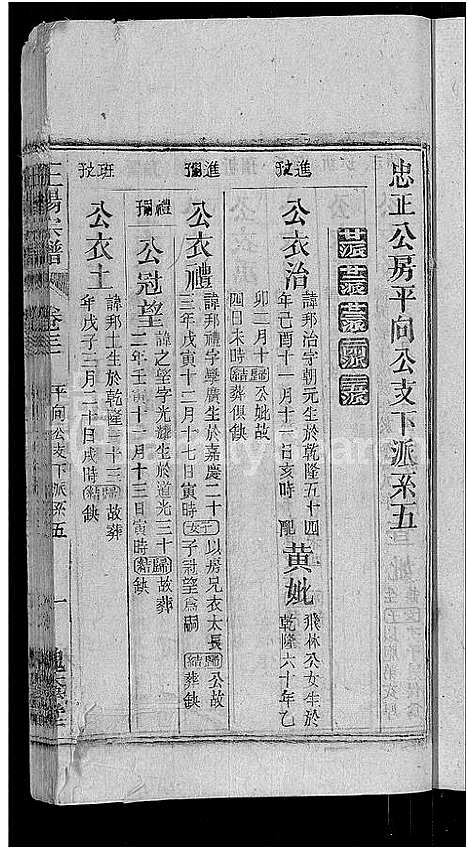 忠正公房平向公支下派系五
廿派 廿一派 廿二派 廿三派
進
公衣治
諱邦治字朝元生於乾隆五十四
年己酉十一月十一日亥時
配
黄妣
飛林公女生於
乾隆六十年乙
卯二月十歸公妣故
四日未時結葬俱缺
進玾
公衣禮
諱邦禮字學廣生於嘉慶二十
三年戊寅十二月十七日寅時
子以房兄衣太長歸公故
女子冠望爲嗣結葬缺
禮玾
公冠望
諱之望字光耀生於道光二十歸故葬
二年壬寅十二月十三日寅時結缺
班
公衣土
諱邦土生於乾隆三十三歸故葬
年戊子二月二十日戌時結缺
宗譜
卷三
平向公支下派系五
一
槐